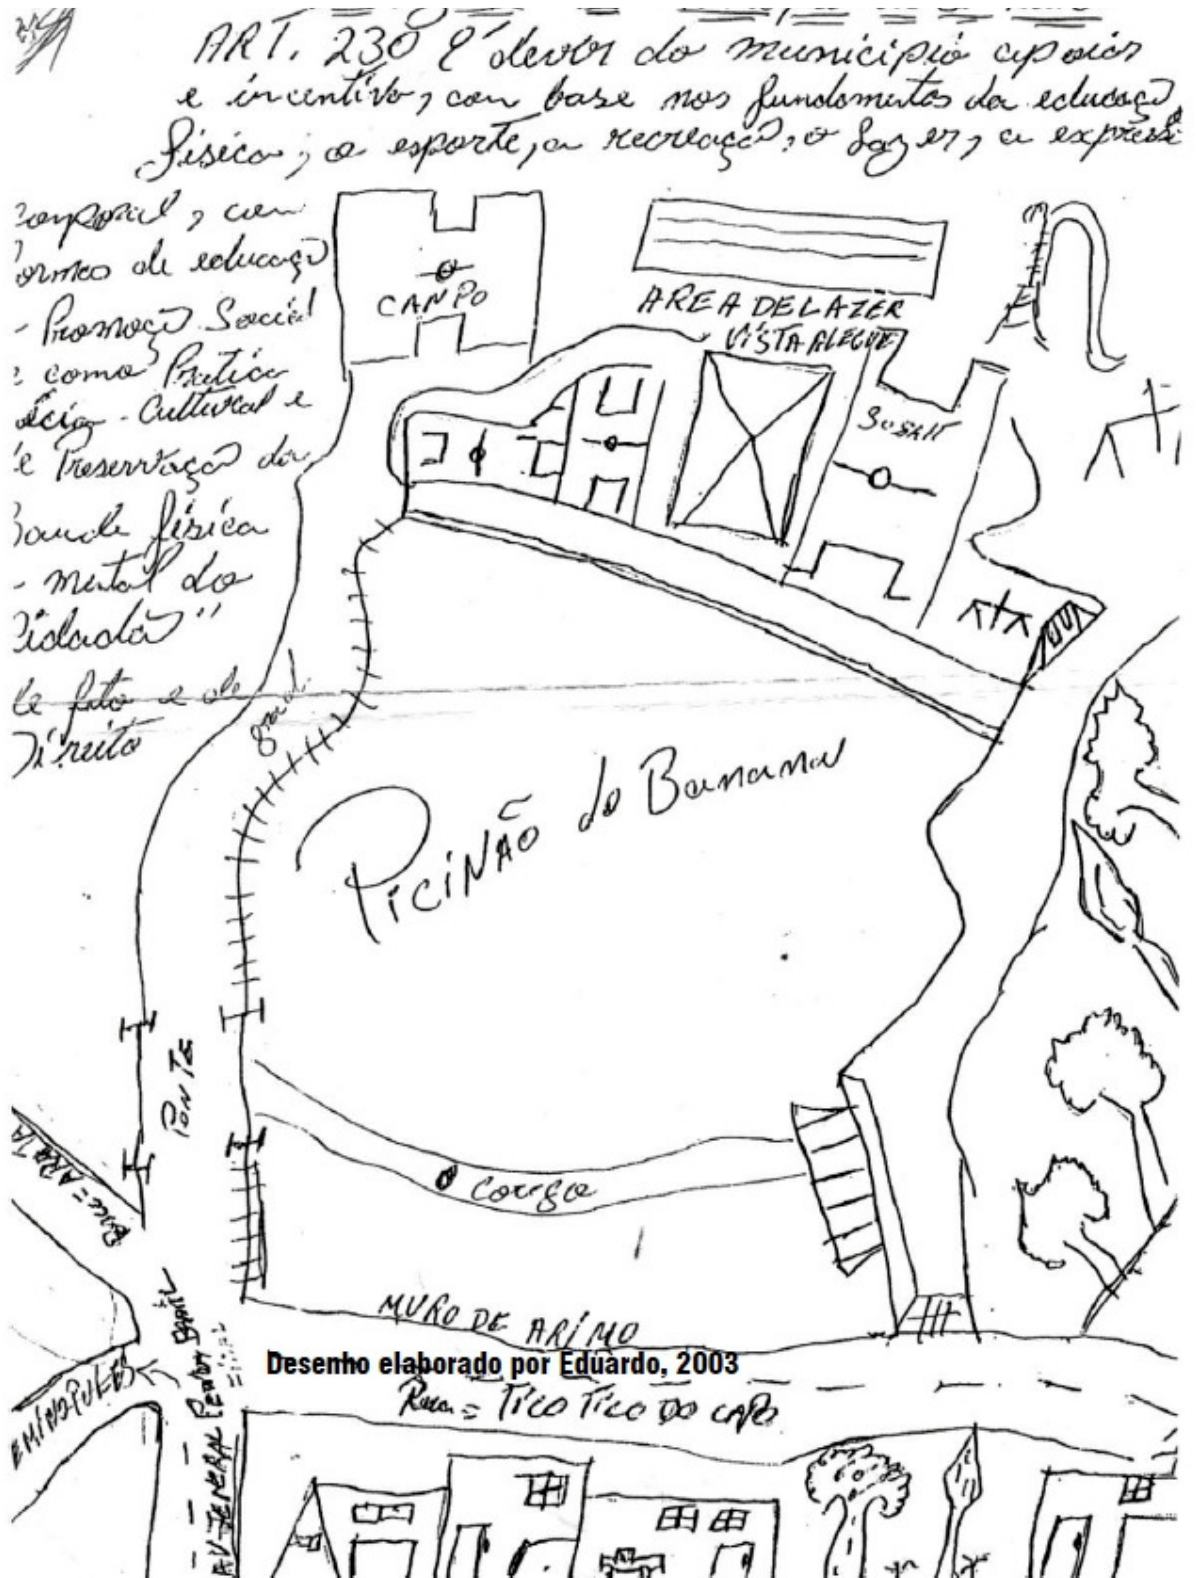 ART. 230 é dever do municipio apoiar
e incentivar, com base nos fundamentos da educaçã
física, o esporte, a recreação, o lazer, a expressã
corporal, com
formas de educaçã
- Promoçã Social
e como Pratica
Sócio-Cultural e
e Preservaçã da
Saude física
- mental do
Cidadão"
de fato e de
Direito
CANPO
AREA DE LAZER
VISTA ALEGRE
grad
PiCiNÃO do Banana
PONTE
Corgo
MURO DE ARIMO
Desenho elaborado por Eduardo, 2003
Rua = TICO TICO DO
AV-